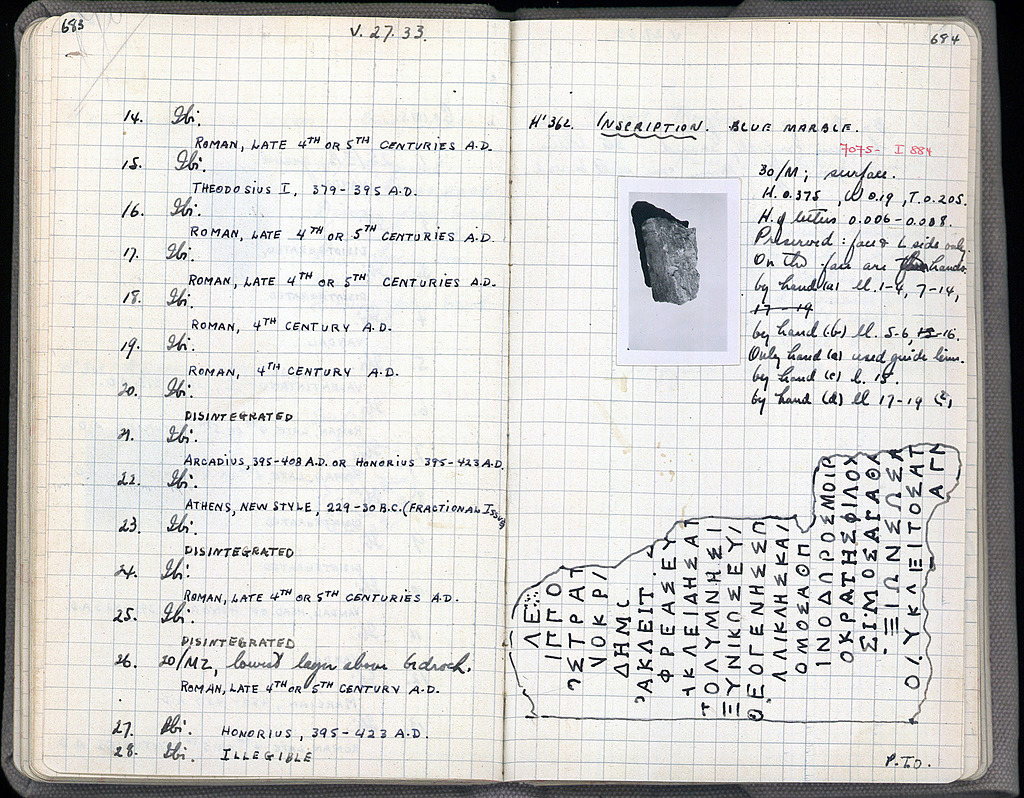 683
V. 27. 33.
14. Ibi.
ROMAN, LATE 4TH OR 5TH CENTURIES A.D.
15. Ibi.
THEODOSIUS I, 379-395 A.D.
16. Ibi.
ROMAN, LATE 4TH OR 5TH CENTURIES A.D.
17. Ibi.
ROMAN, LATE 4TH OR 5TH CENTURIES A.D.
18. Ibi.
ROMAN, 4TH CENTURY A.D.
19. Ibi.
ROMAN, 4TH CENTURY A.D.
20. Ibi.
DISINTEGRATED
21. Ibi.
ARCADIUS, 395-408 A.D. OR HONORIUS 395-423 A.D.
22. Ibi.
ATHENS, NEW STYLE, 229-30 B.C. (FRACTIONAL ISSUE)
23. Ibi.
DISINTEGRATED
24. Ibi.
ROMAN, LATE 4TH OR 5TH CENTURIES A.D.
25. Ibi.
DISINTEGRATED
26. 20/MZ, lowest layer above bedrock.
ROMAN, LATE 4TH OR 5TH CENTURY A.D.
27. Ibi. HONORIUS, 395-423 A.D.
28. Ibi. ILLEGIBLE
684
H'362. INSCRIPTION. BLUE MARBLE.
7075- I 884
30/M; surface.
H. 0.375, W 0.19, T. 0.205.
H. of letters 0.006-0.008.
Preserved: face & L side only.
On the face are hands.
by hand (a) ll. 1-4, 7-14,
17-19
by hand (b) ll. 5-6, 16.
Only hand (a) used guide lines.
by hand (c) l. 15.
by hand (d) ll 17-19 (?)
ΛΕ
ΙΠΠΟ
ΣΤΡΑΤ
ΝΟΚΡ
ΔΗΜ
ΑΚΛΕΙΤ
ΦΡΕΑΣΕΥ
ΚΛΕΙΔΗΣΑΤ
ΤΟΛΥΜΝΗΣΙ
ΞΥΝΙΚΩΣΕΥ
ΘΕΟΓΕΝΗΣΣΠ
ΛΛΙΚΛΗΣΚΑΙ
ΟΜΟΣΑΘΠ
ΙΝΟΔΩΡΟΣΜΟΙΡ
ΟΚΡΑΤΗΣΦΙΛΟΧ
ΣΙΜΟΣΑΓΑΘΑ
ΞΙΩΝΣΩΣΑ
ΥΚΛΕΙΤΟΣΑΤ
ΑΓΝ
P.T.O.